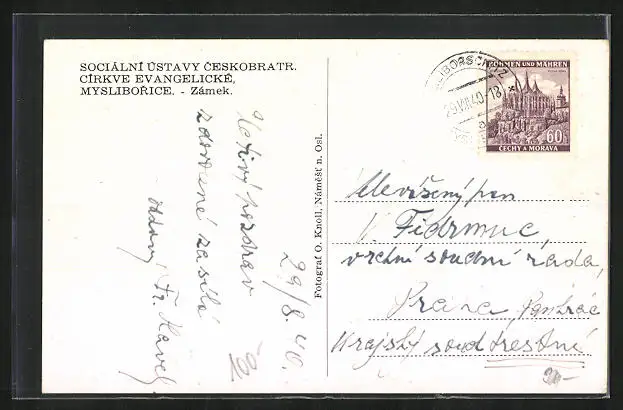 SOCIÁLNÍ ÚSTAVY ČESKOBRATR.
CÍRKVE EVANGELICKÉ,
MYSLIBOŘICE. - Zámek.
Uctivý pozdrav
zdvořile zasílá
oddaný Fr. Havel
29/8. 40.
Fotograf O. Knoll, Náměšť n. Osl.
BÖHMEN UND MÄHREN
60
ČECHY A MORAVA
29.VIII.40-18
Velevážený pan
Fidrmuc,
vrchní soudní rada,
Praha Pankrác
Krajský soud trestní